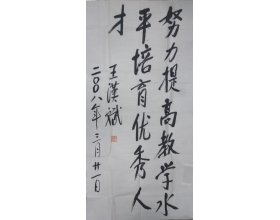 努力提高教学水
平培育优秀人
才
王汉斌
二〇〇八年三月廿一日